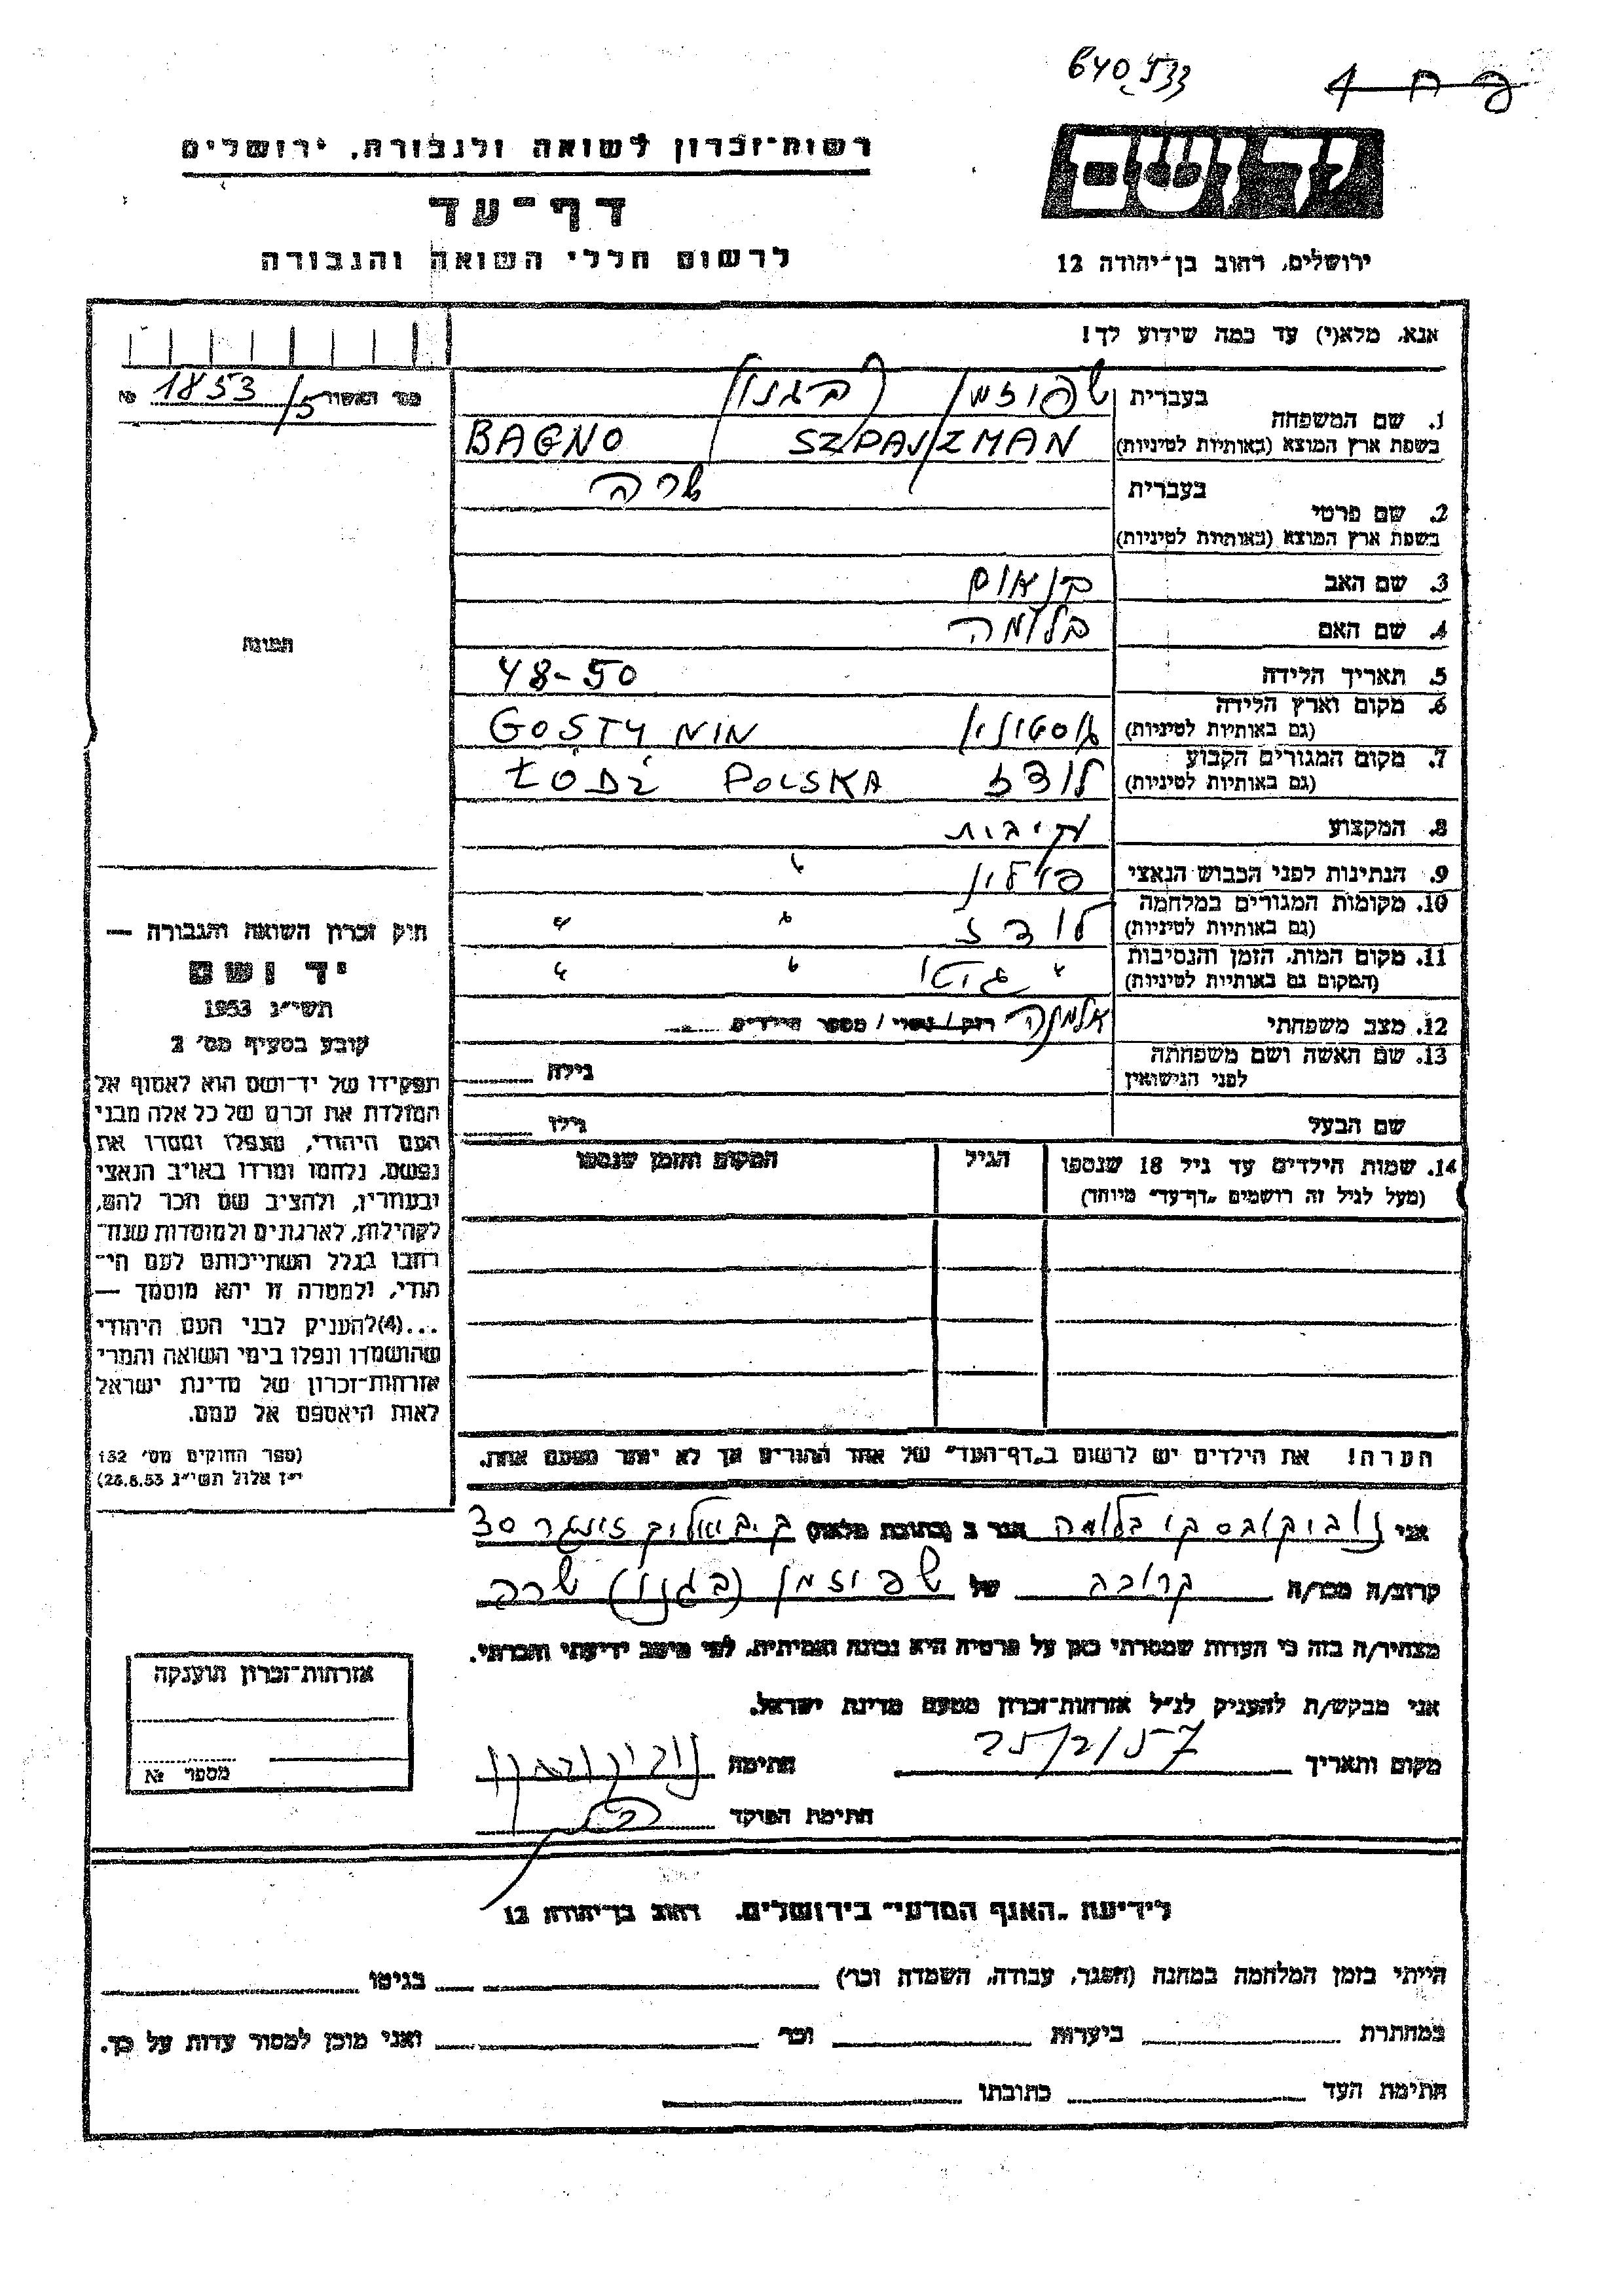 640533
רשות־זכרון לשואה ולגבורה, ירושלים
דף־עד
לרשום חללי השואה והגבורה
ירושלים, רחוב בן־יהודה 12
אנא, מלא(י) עד כמה שידוע לך!
מס׳ האשור 1853/5 №
1. שם המשפחה
בעברית שפוזמן (בגנו)
בשפת ארץ המוצא (באותיות לטיניות) SZPAJZMAN BAGNO
2. שם פרטי
בעברית שרה
בשפת ארץ המוצא (באותיות לטיניות)
3. שם האב
4. שם האם בלומה
תמונה
5. תאריך הלידה 48-50
6. מקום וארץ הלידה
(גם באותיות לטיניות) GOSTYNIN
7. מקום המגורים הקבוע
(גם באותיות לטיניות) לודז ŁÓDŹ POLSKA
8. המקצוע
9. הנתינות לפני הכבוש הנאצי פולין
10. מקומות המגורים במלחמה
(גם באותיות לטיניות) לודז " "
11. מקום המות, הזמן והנסיבות
(המקום גם באותיות לטיניות) " גיטו " "
12. מצב משפחתי אלמנה רווק/נשוי/מספר הילדים
13. שם האשה ושם משפחתה
לפני הנישואין גילה
שם הבעל גילו
14. שמות הילדים עד גיל 18 שנספו הגיל המקום והזמן שנספו
(מעל לגיל זה רושמים "דף־עד" מיוחד)
הערה! את הילדים יש לרשום ב"דף־העד" של אחד ההורים אך לא יותר מפעם אחת.
חוק זכרון השואה והגבורה —
יד ושם
תשי״ג 1953
קובע בסעיף מס׳ 2
תפקידו של יד־ושם הוא לאסוף אל
המולדת את זכרם של כל אלה מבני
העם היהודי, שנפלו ומסרו את
נפשם, נלחמו ומרדו באויב הנאצי
ובעוזריו, ולהציב שם וזכר להם,
לקהילות, לארגונים ולמוסדות שנח־
רבו בגלל השתייכותם לעם הי־
הודי, ולמטרה זו יהא מוסמך —
...(4) להעניק לבני העם היהודי
שהושמדו ונפלו בימי השואה והמרי
אזרחות־זכרון של מדינת ישראל
לאות היאספם אל עמם.
(ספר החוקים מס׳ 132
י״ז אלול תשי״ג 28.8.53)
אני נוביקובסקי בלומה הגר ב (כתובת מלאה) ק ביאליק זינגר 30
קרוב/ה מכר/ה קרובה של שפוזמן (בגנו) שרה
מצהיר/ה בזה כי העדות שמסרתי כאן על פרטיה היא נכונה ואמיתית, לפי מיטב ידיעתי והכרתי.
אני מבקש/ת להעניק לנ״ל אזרחות־זכרון מטעם מדינת ישראל.
מקום ותאריך 25/2/57 חתימה
חתימת הפוקד
אזרחות־זכרון הוענקה
מספר №
לידיעת "האגף המדעי" בירושלים, רחוב בן־יהודה 12
הייתי בזמן המלחמה במחנה (הסגר, עבודה, השמדה וכו׳) בגיטו
במחתרת ביערות וכו׳ ואני מוכן למסור עדות על כך.
חתימת העד כתובתו